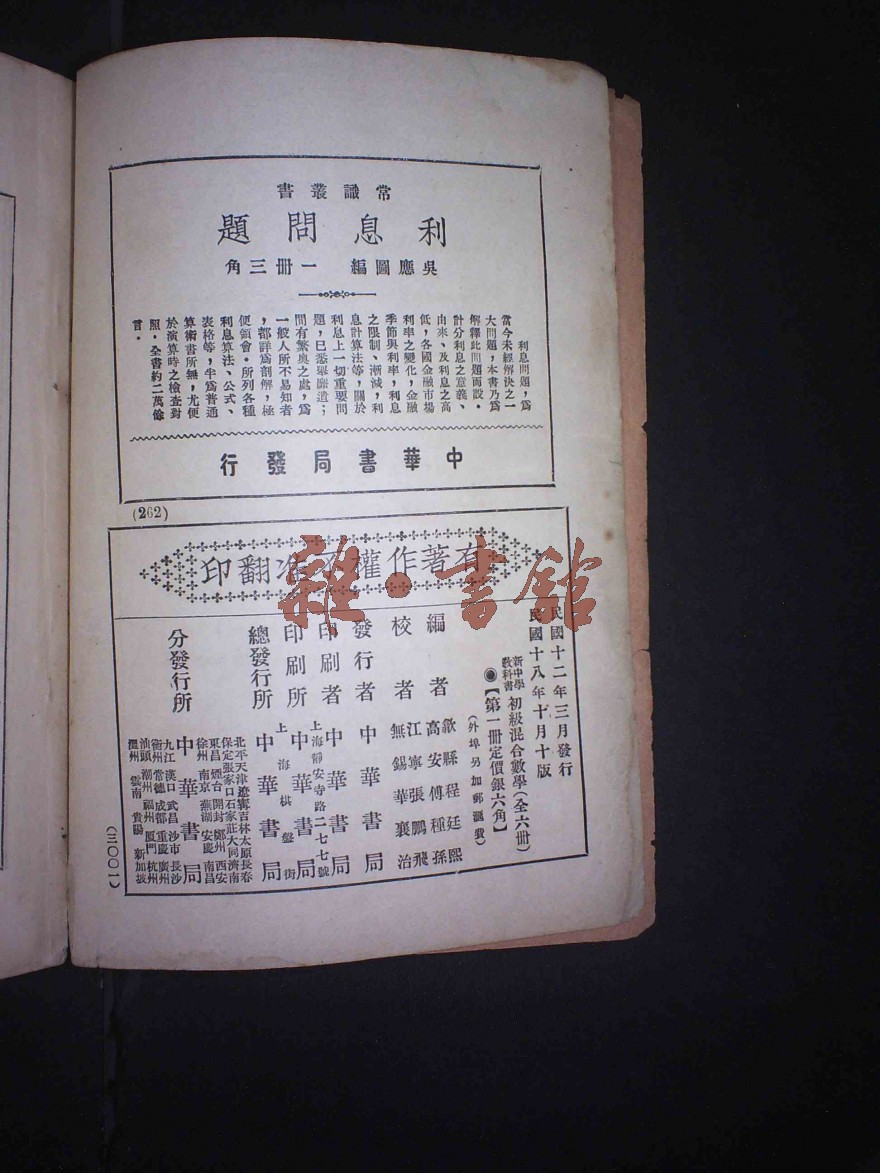 常識叢書
利息問題
吳應圖編 一冊三角
利息問題，爲
當今未經解決之一
大問題，本書乃爲
解釋此問題而設．
計分利息之意義、
由來、及利息之高
低，各國金融市場
利率之變化，金融
季節與利率，利息
之限制、漸減，利
息計算法等，關於
利息上一切重要問
題，已悉舉靡遺；
間有繁奥之處，爲
一般人所不易知者
，都詳爲剖解，極
便領會．所列各種
利息算法、公式、
表格等，半爲普通
算術書所無，尤便
於演算時之檢查對
照．全書約二萬餘
言．
中華書局發行
(262)
有著作權不准翻印
雜·書館
民國十二年三月發行
民國十八年十月十版
新中學教科書 初級混合數學（全六冊）
◉【第一冊定價銀六角】
（外埠另加郵滙費）
編者 歙縣程廷熙
高安傅種孫
校者 江寧張鵬飛
無錫華襄治
發行者 中華書局
印刷者 中華書局
上海靜安寺路二七七號
印刷所 中華書局
上海棋盤街
總發行所 中華書局
分發行所 中華書局
北平天津遼寧吉林太原長春
保定張家口石家莊大同濟南
東昌煙台開封鄭州西安
徐州南京蕪湖安慶南昌
九江漢口武昌沙市長沙
衡州常德成都重慶廣州
汕頭潮州福州厦門杭州
溫州雲南貴陽新加坡
（三〇〇一）